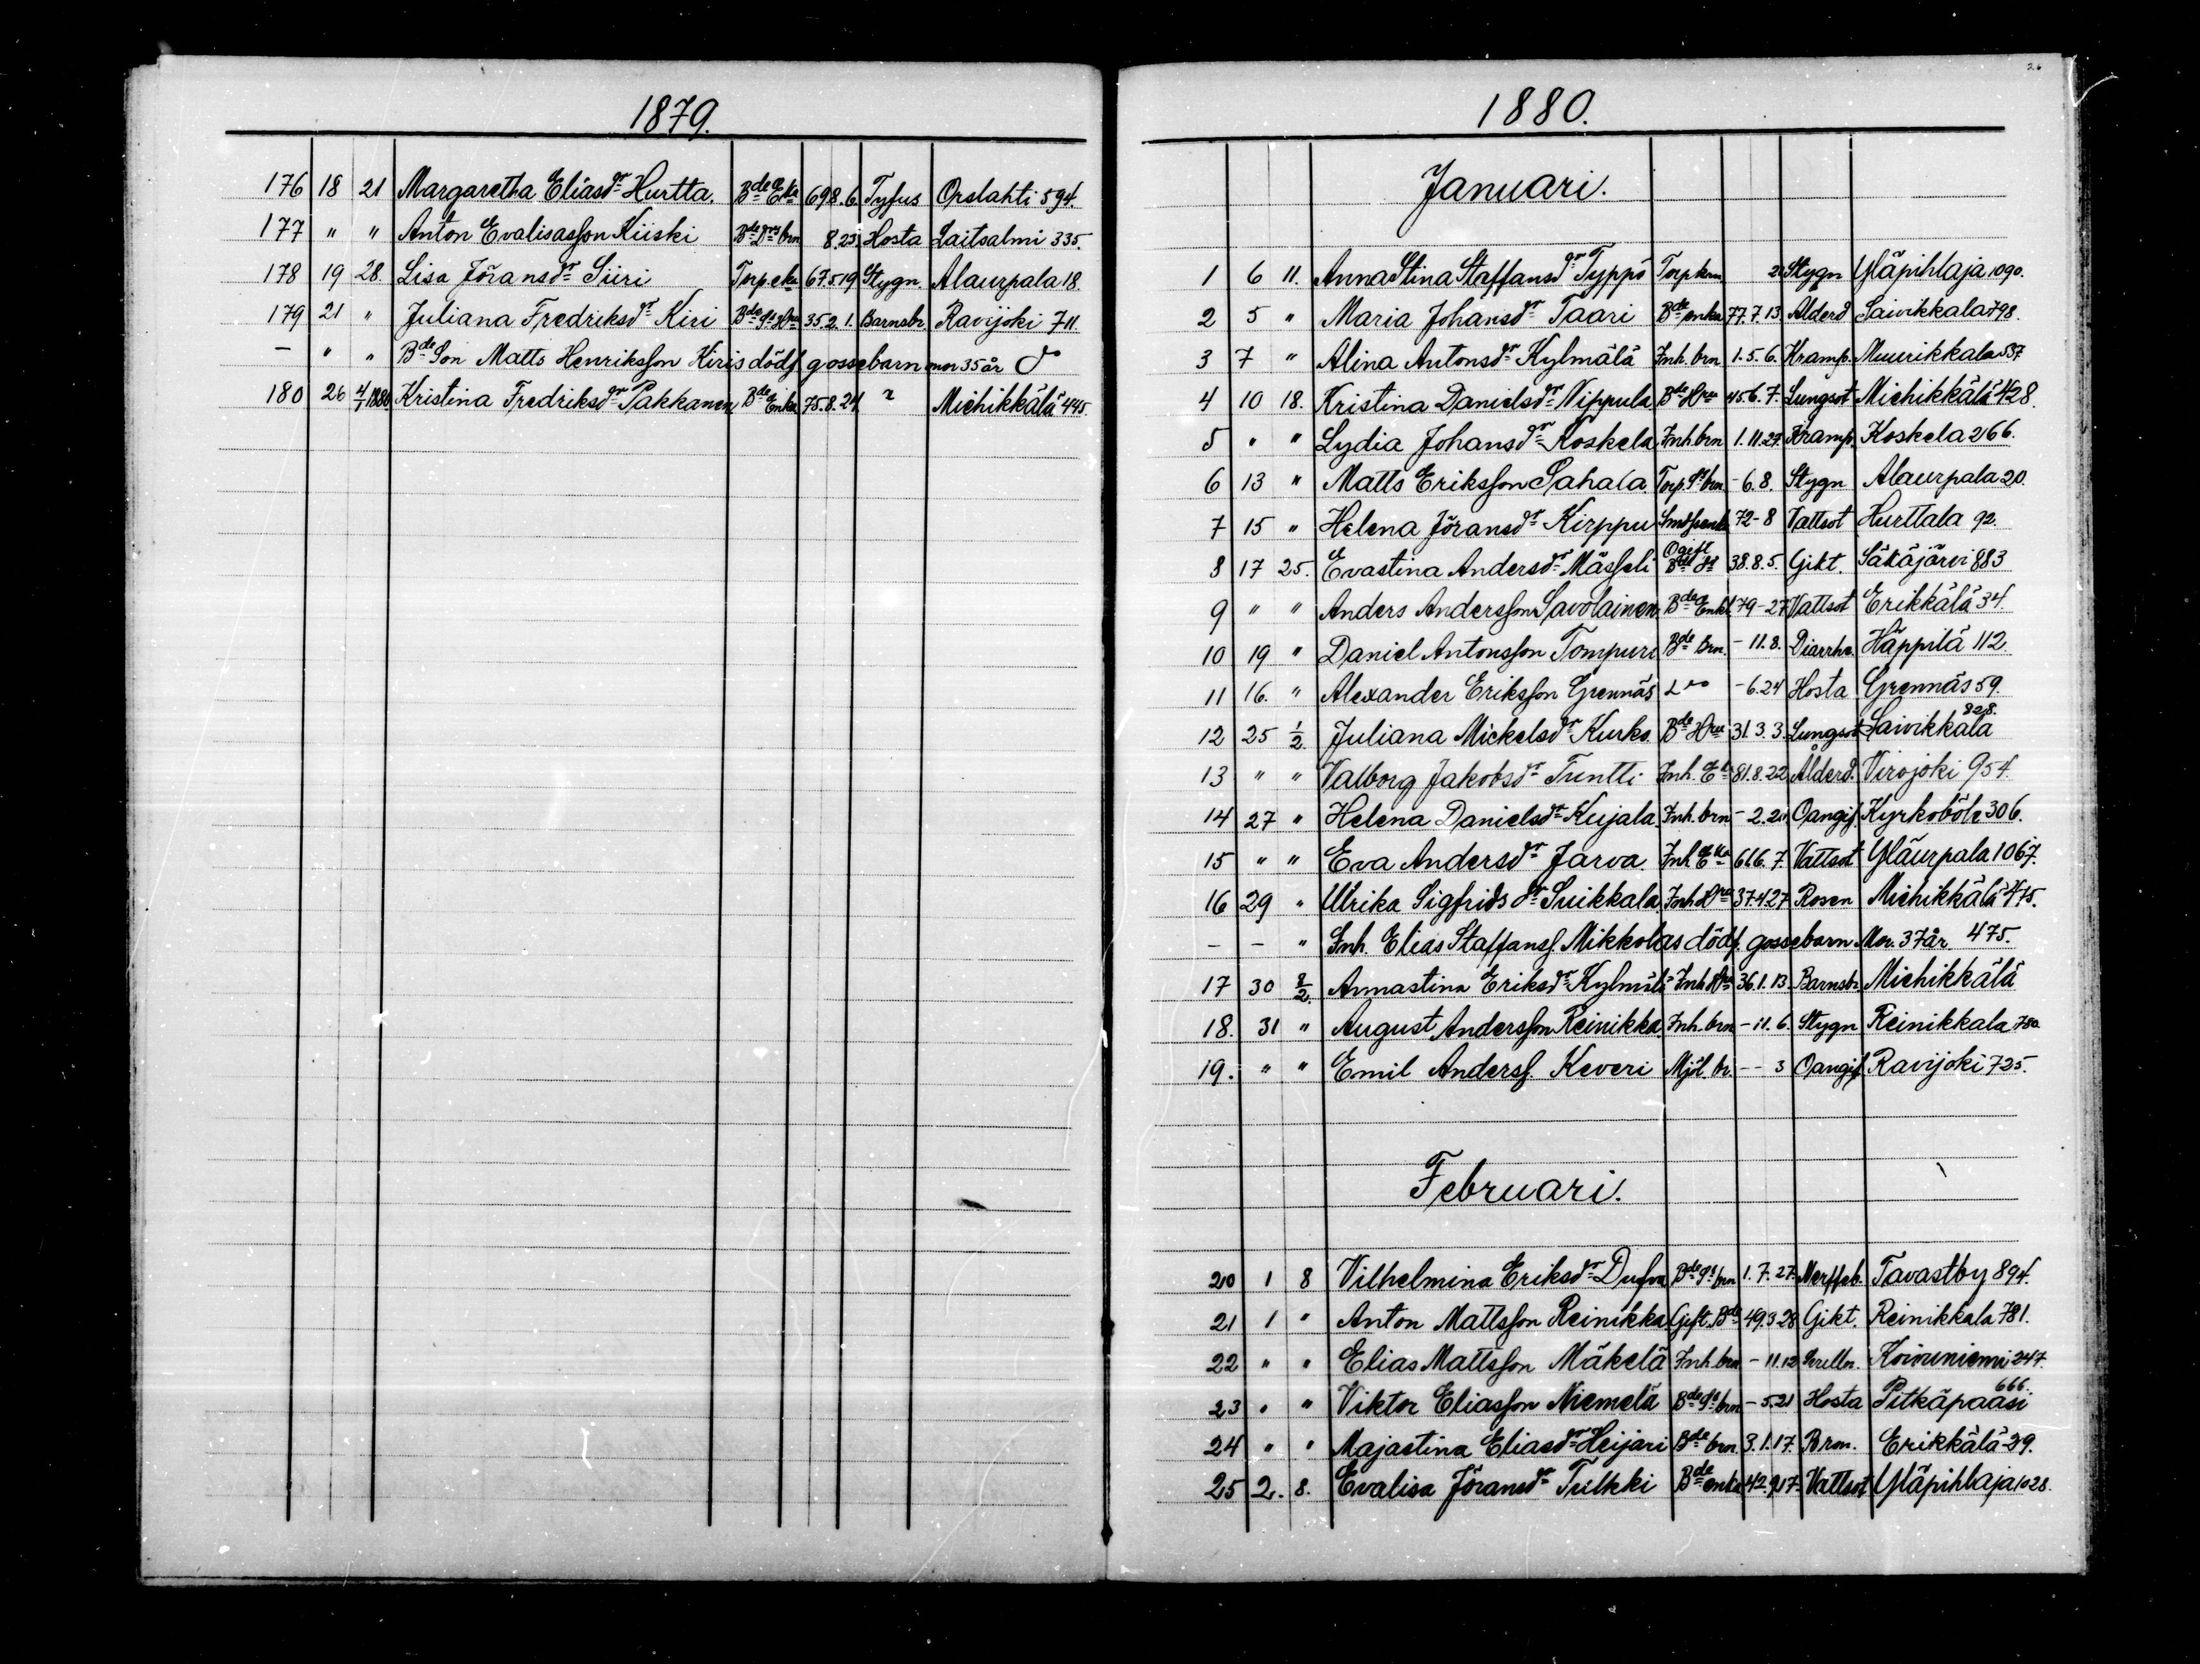 1879.
176 18 21 Margaretha Eliasdr Hurtta. Bde Eka 69.8.6. Tyfus Orslahti 594.
177 " " Anton Evalisasson Kiiski Bde Drs brn 8.23 Hosta Laitsalmi 335.
178 19 28. Lisa Jöransdr Siiri Torp. eka 67.5.19 Stygn. Alaurpala 18.
179 21 " Juliana Fredriksdr Kiri Bde Ss Hru 35.2.1. Barnsbr. Ravijoki 711.
— " " Bde Son Matts Henriksson Kiris dödf. gossebarn mor 35 år do
180 26 4/1 1880 Kristina Fredriksdr Pakkanen Bde Enka 75.8.24. " Michikkälä 445.
26
1880.
Januari.
1 6 11. Anna Stina Staffansdr Typpö Torp brn 21 Stygn Yläpihlaja 1090.
2 5 " Maria Johansdr Taari Bde enka 77.7.13. Ålderd Saivikkala 798.
3 7 " Alina Antonsdr Kylmälä Inh. brn 1.5.6. Kramp. Muurikkala 537
4 10 18. Kristina Danielsdr Nippula Bde Hru 45.6.7. Lungsot Michikkälä 428.
5 " " Lydia Johansdr Koskela Inh. brn 1.11.27. Kramp. Koskela 266.
6 13 " Matts Eriksson Sahala Torp. Ss brn - 6.8. Stygn Alaurpala 20.
7 15 " Helena Jöransdr Kirppu 72-8 Vattsot Hurttala 92.
8 17 25. Evastina Andersdr Mässeli Ogift Bde 38.8.5. Gikt. Säkäjärvi 883
9 " " Anders Andersson Savolainen Bde Enkl. 79-27 Vattsot Erikkälä 34.
10 19 " Daniel Antonsson Tompuri Bde Brn. - 11.8. Diarrhe. Häppilä 112
11 16. " Alexander Eriksson Grennäs Do - 6.24 Hosta Grennäs 59.
12 25 1/2. Juliana Mickelsdr Kurko Bde Hru 31.3.3. Lungsot Saivikkala 828.
13 " " Valborg Jakobsdr Tuntti Inh. Ea 81.8.22 Ålderd. Virojoki 954.
14 27 " Helena Danielsdr Kujala. Inh. brn - 2.21 Oangif. Kyrkoböle 306.
15 " " Eva Andersdr Jarva. Inh Eka 61.6.7. Vattsot Yläurpala 1067.
16 29 " Ulrika Sigfridsdr Suikkala Inh Hru 37.4.27. Rosen Michikkälä 475.
- - " Inh. Elias Staffansf. Mikkolas dödf. gossebarn Mor. 37 år. 475.
17 30 8/2. Annastina Eriksdr Kylmälä Inh Hru 36.1.13. Barnsbr. Michikkälä
18. 31 " August Andersson Reinikka Inh. brn - 11.6. Stygn Reinikkala 780
19. " " Emil Andersf. Keveri Mjöl. br. - - 3 Oangif. Ravijoki 725.
Februari.
20 1 8 Vilhelmina Eriksdr Dufva Bde Ss brn 1.7.27. Nerffeb. Tavastby 894.
21 1 " Anton Mattsson Reinikka Gift. Bde 49.3.28 Gikt. Reinikkala 781.
22 " " Elias Mattsson Mäkelä Inh. brn - 11.12 Koivuniemi 247.
23 " " Viktor Eliasson Niemelä Bde Ss brn - 5.21 Hosta Pitkäpaasi 666.
24 " " Majastina Eliasdr Heijari Bde brn. 3.1.17. Bron. Erikkälä 29.
25 2. 8. Evalisa Jöransdr Tulkki Bde enka 42.9.17. Vattsot Yläpihlaja 1028.